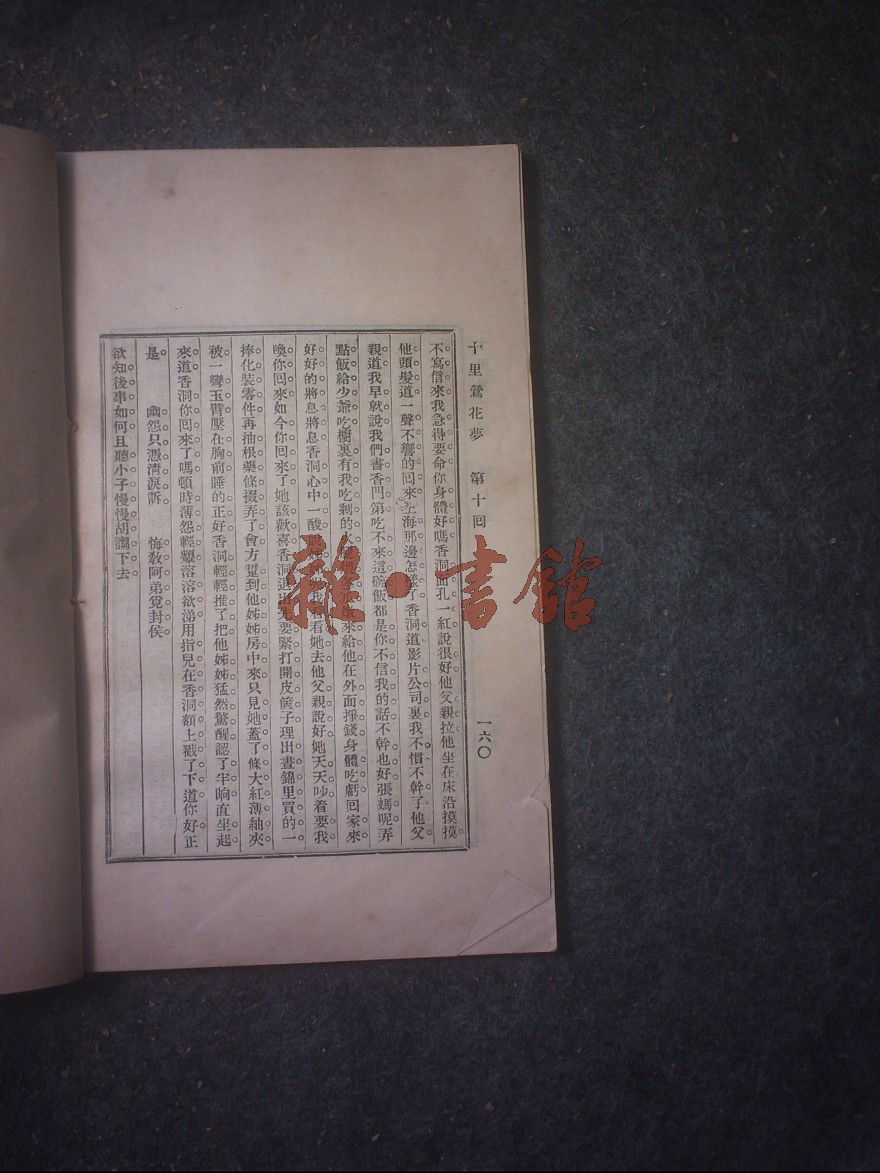 十里鶯花夢　第十回
一六〇
不寫信來我急得要命你身體好嗎香洞面孔一紅說很好他父親拉他坐在床沿摸摸
他頭髮道一聲不響的回來上海那邊怎樣了香洞道影片公司裏我不慣不幹了他父
親道我早就說我們書香門第吃不來這碗飯都是你不信我的話不幹也好張媽呢弄
點飯給少爺吃櫥裏有我吃剩的火來給他在外面掙錢身體吃虧回家來
好好的將息將息香洞心中一酸看看她去他父親說好她天天吵着要我
喚你回來如今你回來了她該歡喜香洞退出先要緊打開皮篋子理出晝錦里買的一
捧化裝零件再抽根藥條掇弄了會方踅到他姊姊房中來只見她蓋了條大紅薄紬夾
被一彎玉臂壓在胸前睡的正好香洞輕輕推了把他姊姊猛然驚醒認了半晌直坐起
來道香洞你回來了嗎頓時薄怨輕顰溶溶欲涕用指兒在香洞額上戳了下道你好正
是。　幽怨只憑清淚訴　悔教阿弟覓封侯
欲知後事如何且聽小子慢慢胡謅下去。
雜·書館